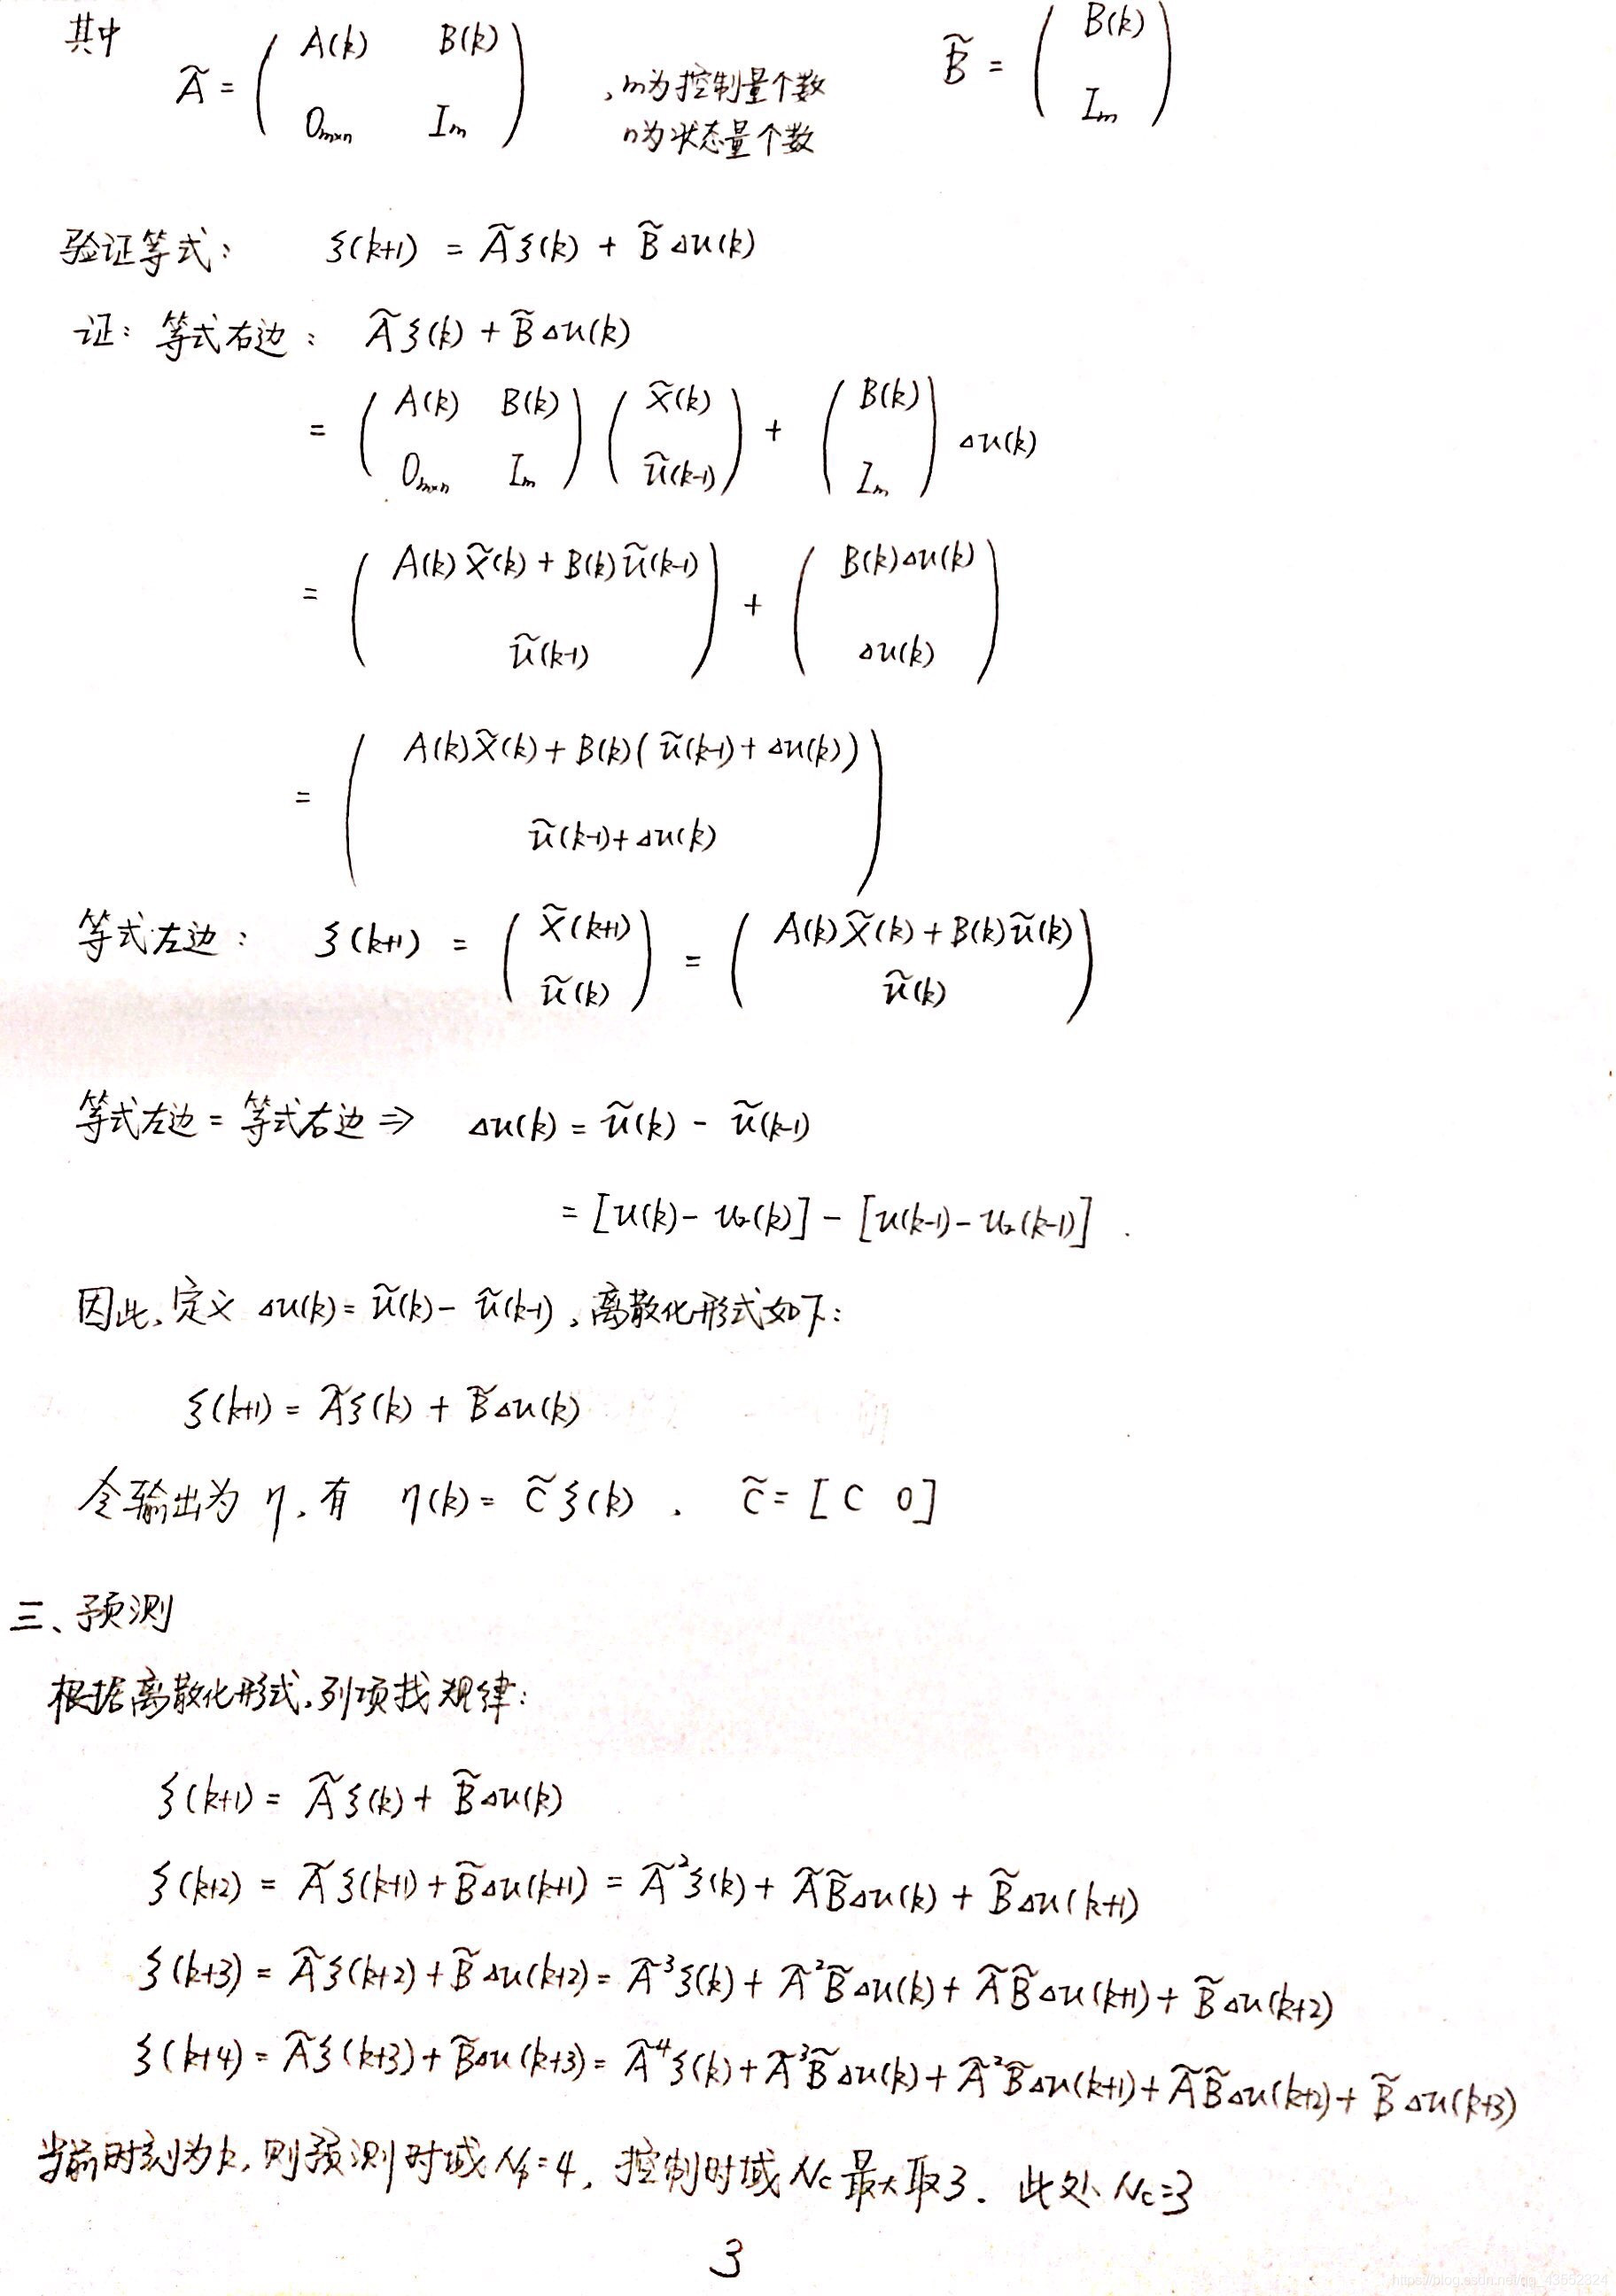 其中 Ã = ( A(k) B(k) ，m为控制量个数 B̃ = ( B(k)
0ₘₓₙ Iₘ ) n为状态量个数 Iₘ )
验证等式： ξ(k+1) = Ãξ(k) + B̃Δu(k)
证：等式右边： Ãξ(k) + B̃Δu(k)
= ( A(k) B(k) ( x̃(k) + ( B(k)
0ₘₓₙ Iₘ ) ũ(k-1) ) Iₘ ) Δu(k)
= ( A(k)x̃(k) + B(k)ũ(k-1) + ( B(k)Δu(k)
ũ(k-1) ) Δu(k) )
= ( A(k)x̃(k) + B(k)( ũ(k-1) + Δu(k) )
ũ(k-1) + Δu(k) )
等式左边： ξ(k+1) = ( x̃(k+1) = ( A(k)x̃(k) + B(k)ũ(k)
ũ(k) ) ũ(k) )
等式左边 = 等式右边 ⇒ Δu(k) = ũ(k) - ũ(k-1)
= [u(k) - uᵣ(k)] - [u(k-1) - uᵣ(k-1)] .
因此，定义 Δu(k) = ũ(k) - ũ(k-1)，离散化形式如下：
ξ(k+1) = Ãξ(k) + B̃Δu(k)
令输出为 η，有 η(k) = C̃ξ(k) ， C̃ = [C 0]
三、预测
根据离散化形式，列项找规律：
ξ(k+1) = Ãξ(k) + B̃Δu(k)
ξ(k+2) = Ãξ(k+1) + B̃Δu(k+1) = òξ(k) + ÃB̃Δu(k) + B̃Δu(k+1)
ξ(k+3) = Ãξ(k+2) + B̃Δu(k+2) = óξ(k) + òB̃Δu(k) + ÃB̃Δu(k+1) + B̃Δu(k+2)
ξ(k+4) = Ãξ(k+3) + B̃Δu(k+3) = Ã⁴ξ(k) + óB̃Δu(k) + òB̃Δu(k+1) + ÃB̃Δu(k+2) + B̃Δu(k+3)
当前时刻为k，则预测时域Np=4，控制时域Nc最大取3．此处Nc=3
3
https://blog.csdn.net/qq_43552324